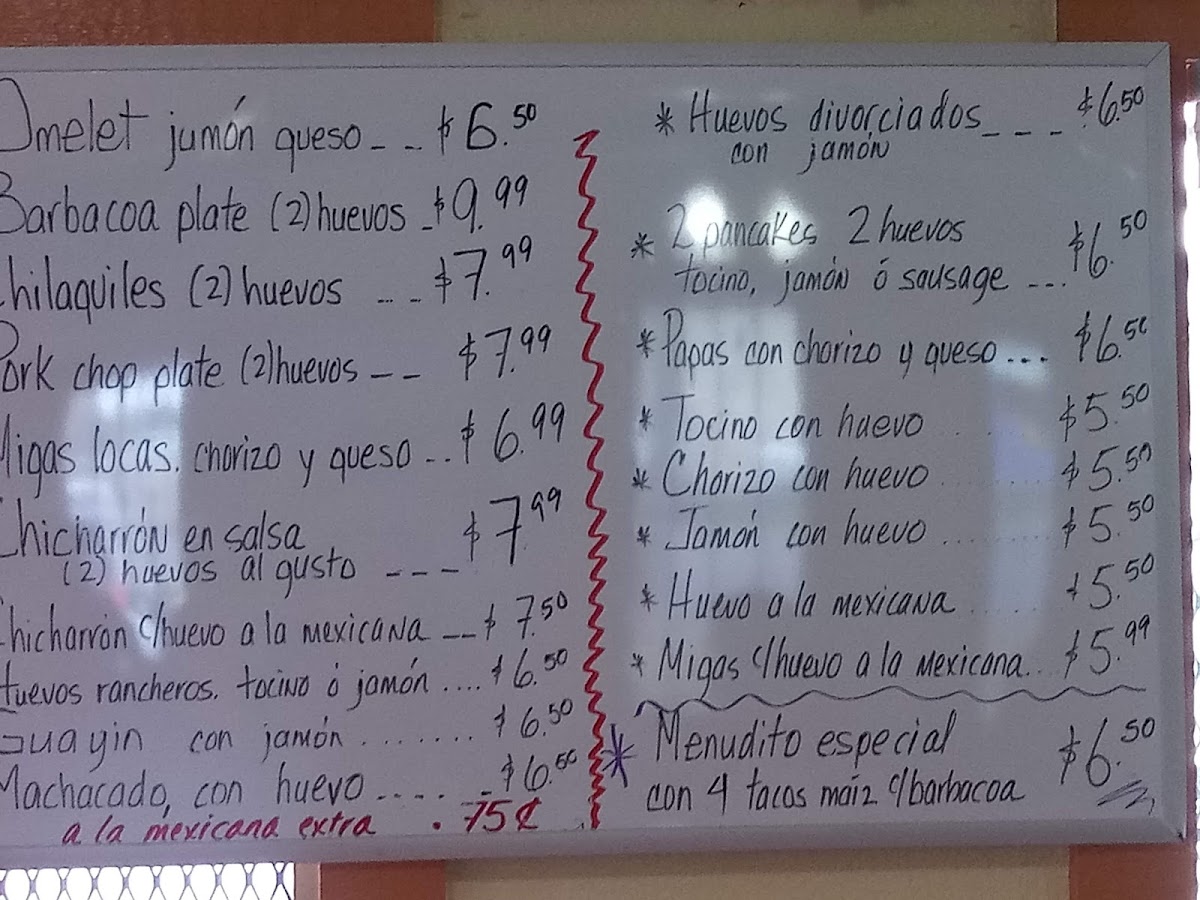 Omelet jumón queso _ _ $6.50
Barbacoa plate (2) huevos _ $9.99
Chilaquiles (2) huevos _ _ _ $7.99
Pork chop plate (2) huevos _ _ $7.99
Migas locas. chorizo y queso .. $6.99
Chicharrón en salsa
(2) huevos al gusto _ _ _ $7.99
Chicharrón c/huevo a la mexicana _ _ $7.50
Huevos rancheros. tocino ó jamón .... $6.50
Guayin con jamón ........ $6.50
Machacado, con huevo ..... $6.50
a la mexicana extra . 75¢
* Huevos divorciados _ _ _ $6.50
con jamón
* 2 pancakes 2 huevos
tocino, jamón ó sausage _ ... $6.50
* Papas con chorizo y queso ... $6.50
* Tocino con huevo ... $5.50
* Chorizo con huevo ........ $5.50
* Jamón con huevo ........ $5.50
* Huevo a la mexicana ....... $5.50
* Migas c/huevo a la mexicana .. $5.99
* Menudito especial
con 4 tacos máiz c/barbacoa $6.50